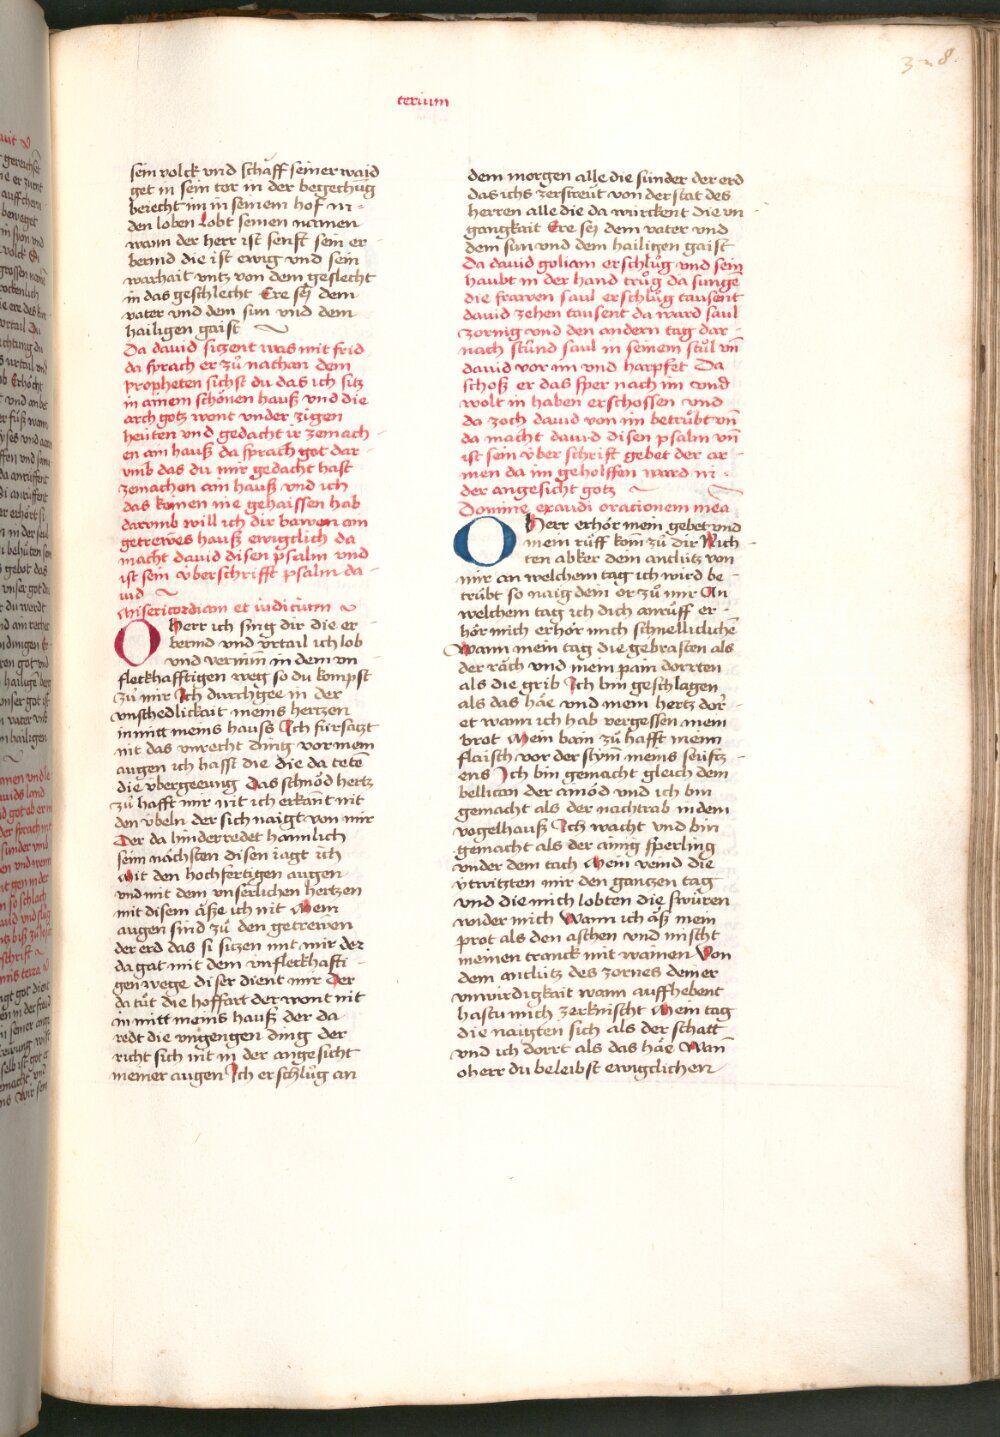 328.
terium
sein volck vnd schäff seiner waid
get in sein tor in der begechũg
beiecht im in seinem hof in -
den loben Lobt seinen namen
wann der herr ist senft sein er
bermd die ist ewig vnd sein
warhait vntz von dem geslecht
in das geschlecht Ere seÿ dem
vater vnd dem sun vnd dem
hailigen gaist
Da dauid siczent was mit frid
da sprach er zů nathan dem
propheten sichst du das ich sitz
in ainem schönen hauß vnd die
arch gotz wont vnder zigen
heüten vnd gedacht ir zemach -
en ain hauß da sprach got dar -
vmb das du mir gedacht hast
zemachen ain hauß vnd ich
das keinen nie gehaissen hab
darumb will ich dir bawen ain
getrewes hauß ewigclich da
macht dauid disen psalm vnd
ist sein v̈berschrifft psalm da -
uid
Misericordiam et iudicium
O herr ich sing dir die er
bermd vnd vrtail ich lob
vnd vernim in dem vn
fleckhafftigen weg so du kompst
zů mir Ich durchgee in der
vnschedlickait meins hertzen
in mitt meins hauß Ich fürsatzt
nit das vnrecht ding vor mein
augen ich hafft die die da teten
die v̈bergeeung Das schnöd hertz
zů hafft mir nit ich erkant nit
den v̈beln der sich naigt von mir
Der da hinderredet hainlich
seim nächsten disen iagt ich
Mit den hochfertigen augen
vnd mit dem vnserlichen hertzen
mit disem äße ich nit Mein
augen sind zů den getrewen
der erd das si siczen mit mir der
da gat mit dem vnfleckhafti -
gen wege diser dient mir Der
da tůt die hoffart der wont nit
in mitt meins hauß der da
redt die vngengen ding der
richt sich nit in der angesicht
meiner augen Ich erschlůg an
dem morgen alle die sünder der erd
das ichs zerstreüt von der stat des
herren alle die da würckent die vn -
gangkait Ere seÿ dem vater vnd
dem sun vnd dem hailigen gaist
Da dauid goliam erschlůg vnd sein
haubt in der hand trůg da sunge
die frawen saul erschlůg tausent
dauid zehen tausent da ward saul
zornig vnd den andern tag dar -
nach stůnd saul in seinem stůl vñ
dauid vor im vnd harpfet Da
schoß er das sper nach im vnd
wolt in haben erschossen vnd
da zoch dauid von im betrübt vñ
da macht dauid disen psalm vñ
ist sein v̈ber schrift gebet der ar -
men da im geholffen ward in -
der angesicht gotz
Domine exaudi orationem mea
O herr erhör mein gebet vnd
mein rüff kom zů dir Nich
ten abker dein antlütz von
mir an welchem tag ich wird be -
trübt so naig dem or zů mir An
welchem tag ich dich anrůff er -
hör mich erhör mich schnelliclichē
Wann mein tag die gebrasten als
der räch vnd mein pain dorrten
als die grib Ich bin geschlagen
als das häe vnd mein hertz dor -
et wann ich hab vergessen mein
brot Mein bain zů hafft meim
flaisch vor der stym meins seüftz -
ens Ich bin gemacht gleich dem
bellican der ainöd vnd ich bin
gemacht als der nachtrab in dem
vogelhauß Ich wacht vnd bin
gemacht als der ainig sperling
vnder dem tach Mein veind die
vtwitzten mir den gantzen tag
vnd die mich lobten die swůren
wider mich Wann ich äß mein
prot als den aschen vnd mischt
meinen tranck mit wainen Von
dem antlütz des zornes deiner
vnwirdigkait wann auffhebent
hastu mich zerknischt Mein tag
die naigten sich als der schatt
vnd ich dorrt als das häe Wañ
o herr du beleibst ewigclichen